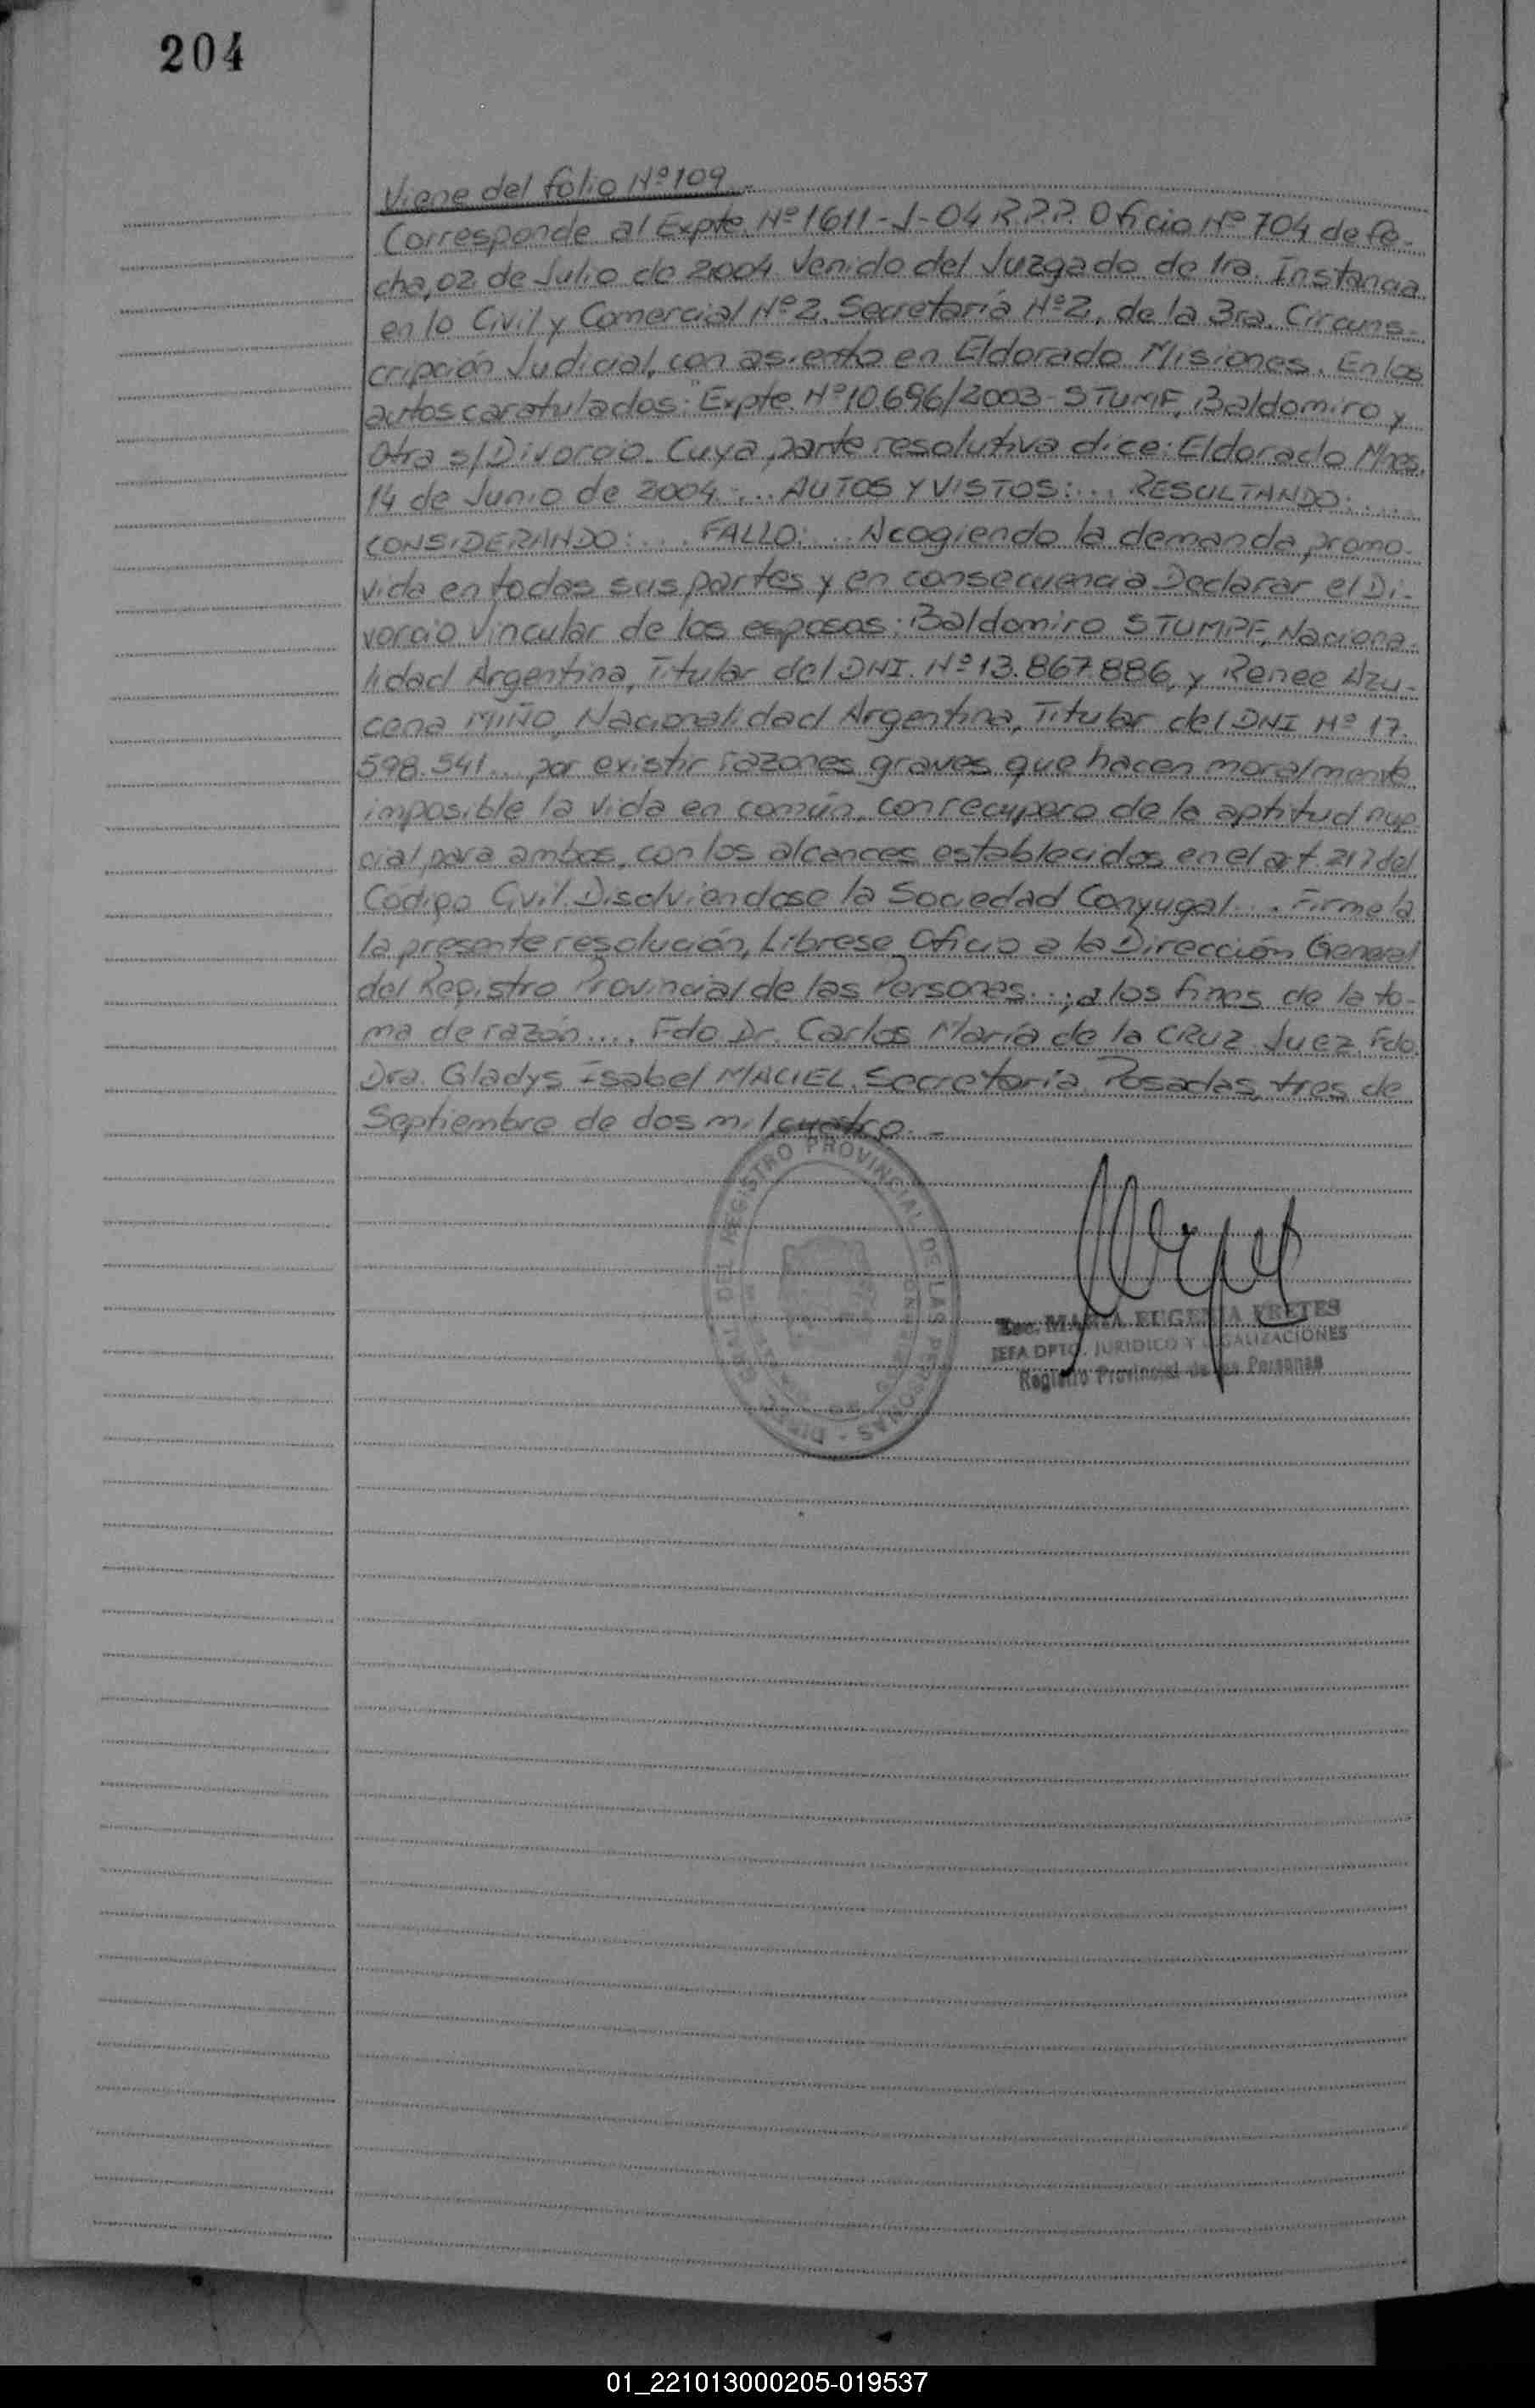 204
Viene del folio Nº 109.-
Corresponde al Expte. Nº 1611-J-04 R.P.P. Oficio Nº 704 de fe-
cha, 02 de Julio de 2004. Venido del Juzgado de 1ra. Instancia
en lo Civil y Comercial Nº 2, Secretaría Nº 2, de la 3ra. Circuns-
cripción Judicial, con asiento en Eldorado Misiones. En los
autos caratulados: "Expte. Nº 10.696/2003- STUMF, Baldomiro y
Otra s/Divorcio. Cuya parte resolutiva dice: Eldorado Mnes.
14 de Junio de 2004:... AUTOS Y VISTOS:... RESULTANDO:....
CONSIDERANDO:.... FALLO:... Acogiendo la demanda promo-
vida en todas sus partes y en consecuencia Declarar el Di-
vorcio Vincular de los esposos: Baldomiro STUMPF, Naciona-
lidad Argentina, Titular del DNI. Nº 13.867.886, y Renee Azu-
cena MIÑO, Nacionalidad Argentina, Titular del DNI Nº 17.
598.541... por existir razones graves que hacen moralmente
imposible la vida en común, con recupero de la aptitud nup-
cial para ambos, con los alcances establecidos en el art. 217 del
Código Civil. Disolviéndose la Sociedad Conyugal.... Firme la
la presente resolución, Librese Oficio a la Dirección General
del Registro Provincial de las Personas...; a los fines de la to-
ma de razón.... Fdo. Dr. Carlos María de la CRUZ. Juez. Fdo.
Dra. Gladys Isabel MACIEL. Secretaria. Posadas, tres de
Septiembre de dos mil cuatro.-
DEL REGISTRO PROVINCIAL DE LAS PERSONAS -
MARIA EUGENIA FRETES
JEFA DPTO. JURIDICO Y LEGALIZACIONES
Registro Provincial de las Personas
01_221013000205-019537